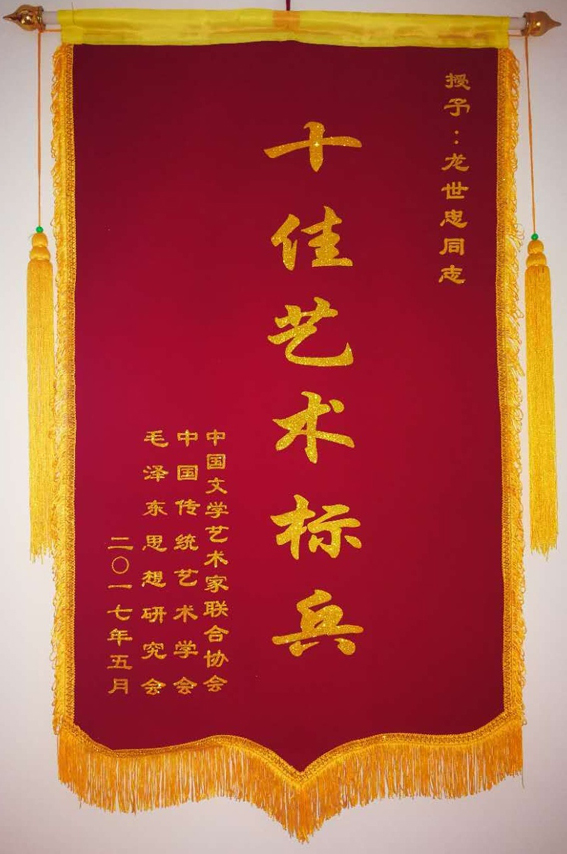 授予：龙世忠同志
十佳艺术标兵
中国文学艺术家联合协会
中国传统艺术学会
毛泽东思想研究会
二〇一七年五月